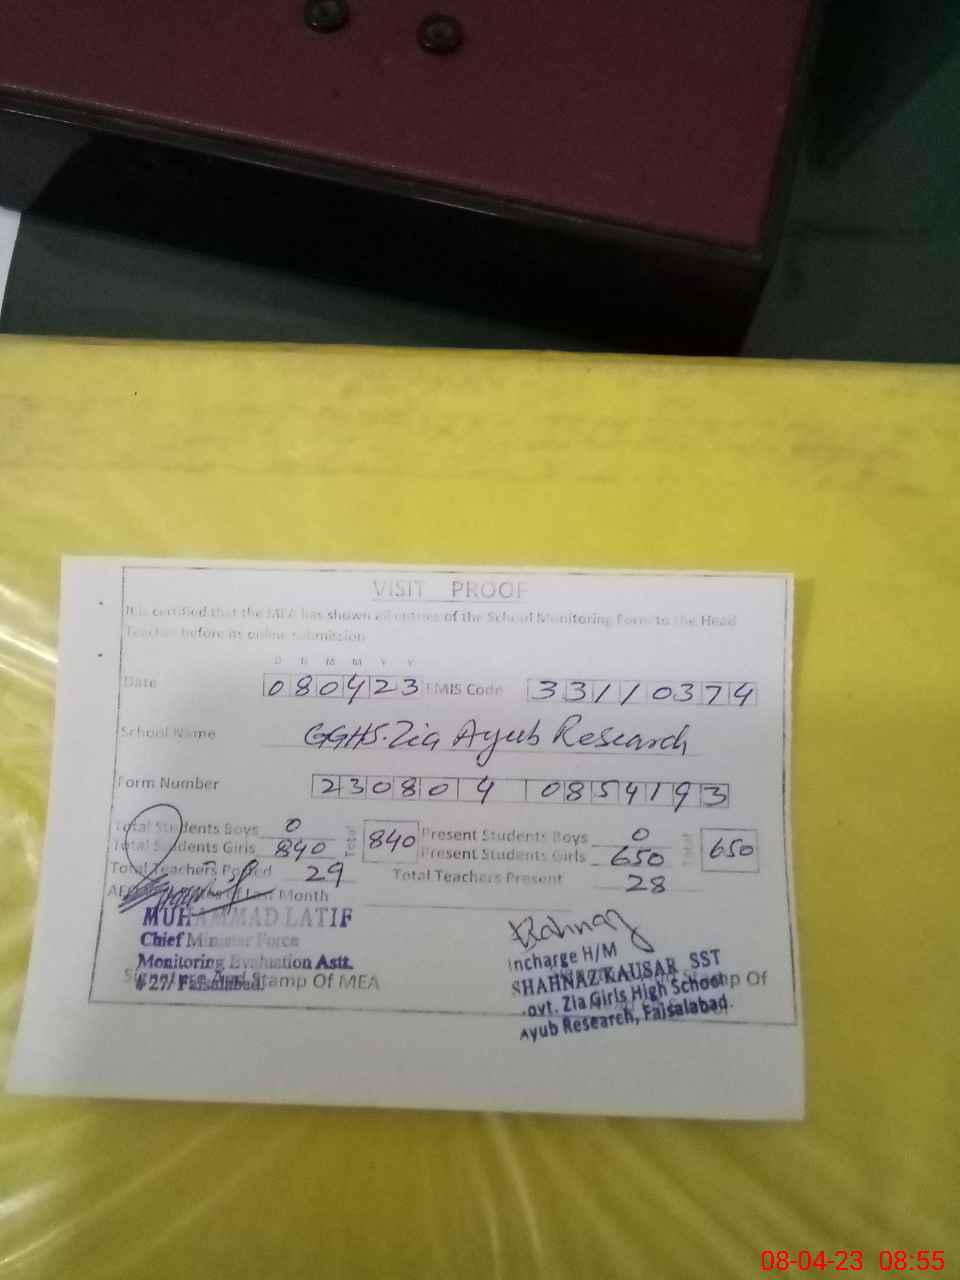 VISIT PROOF
It is certified that the MEA has shown all entries of the School Monitoring Form to the Head
Teacher before its online submission
D D M M Y Y
Date 080423 EMIS Code 33110374
School Name GGHS. Zia Ayub Research
Form Number 230804 0854193
Total Students Boys 0 Total 840 Present Students Boys 0 Total 650
Total Students Girls 840 Present Students Girls 650
Total Teachers Posted 29 Total Teachers Present 28
of Last Month
MUHAMMAD LATIF
Chief Minister Force
Monitoring Evaluation Astt.
# 27/ Faisalabad.
Stamp Of MEA
Incharge H/M
SHAHNAZ KAUSAR SST
Stamp Of
Govt. Zia Girls High School
Ayub Research, Faisalabad.
08-04-23 08:55